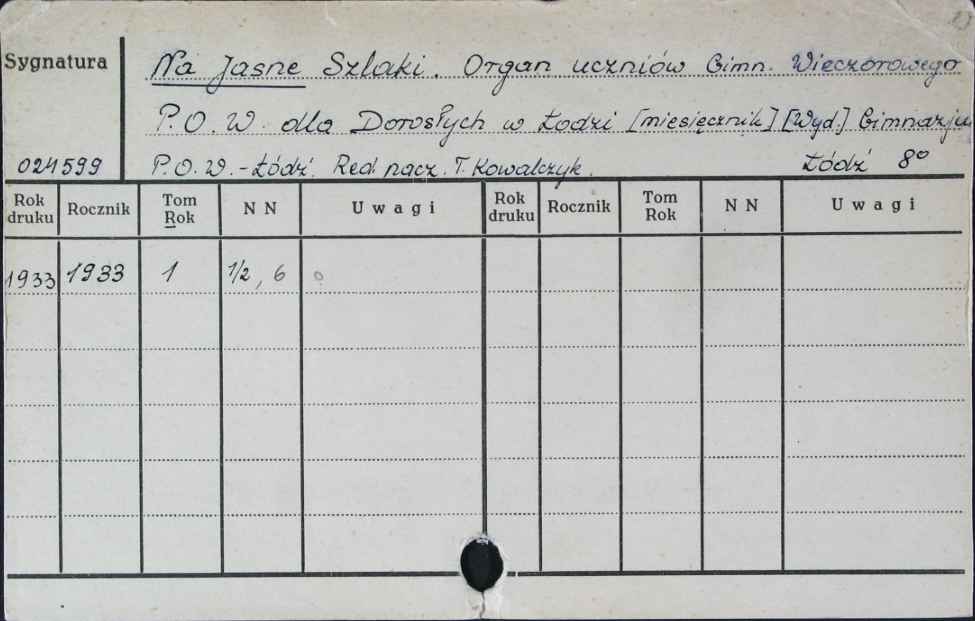 Sygnatura
Na Jasne Szlaki. Organ uczniów Gimn. Wieczorowego
P.O.W. dla Dorosłych w Łodzi [miesięcznik] [Wyd.] Gimnazjum
024599 P.O.W.-Łódź. Red. nacz. T. Kowalczyk. Łódź 8°
Rok druku Rocznik Tom Rok NN Uwagi Rok druku Rocznik Tom Rok NN Uwagi
1933 1933 1 1/2, 6